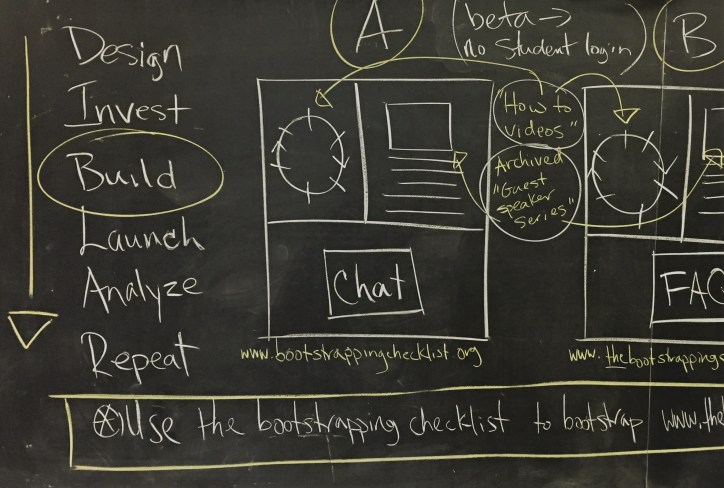 Design
Invest
Build
Launch
Analyze
Repeat
A
beta →
no student login
B
"How to
videos"
Archived
"Guest
speaker
series"
Chat
FAQ
www.bootstrappingchecklist.org
www.thebootstrappings
Use the bootstrapping checklist to bootstrap www.the